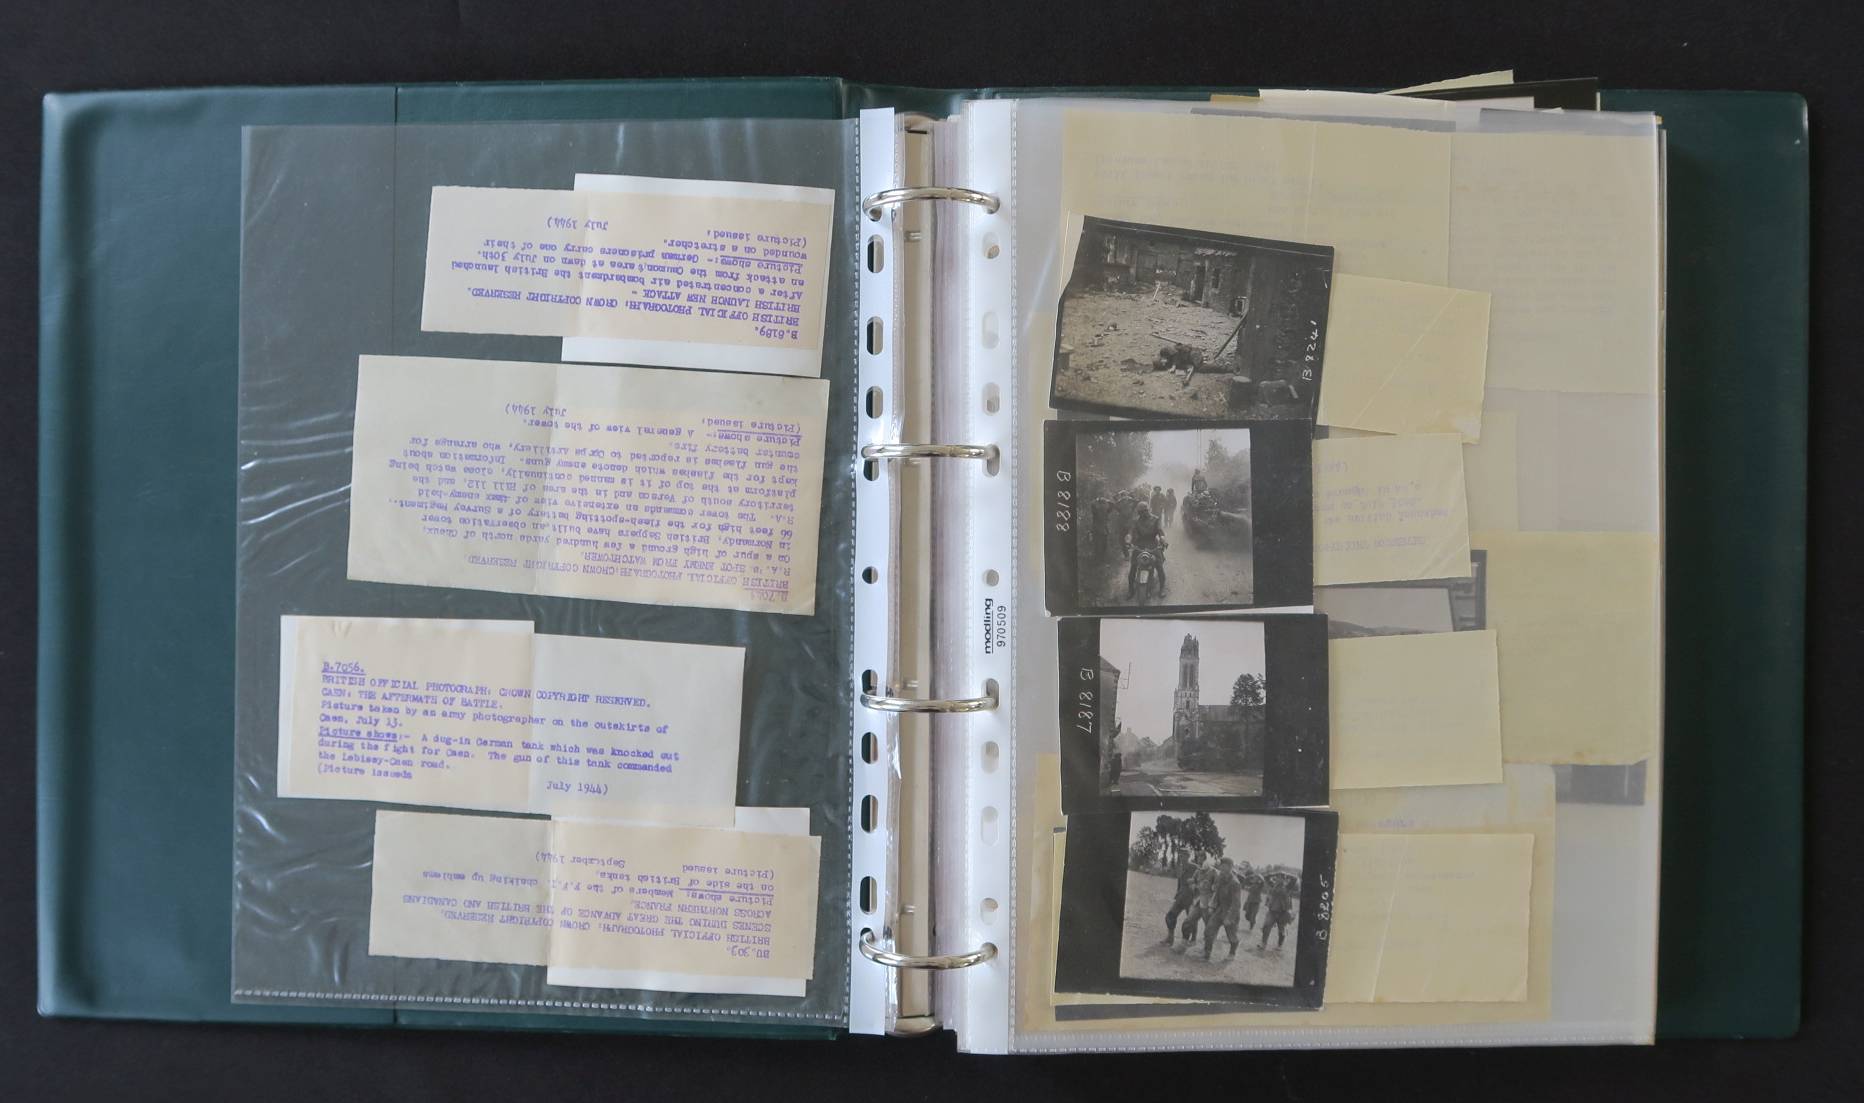 B.8189.
BRITISH OFFICIAL PHOTOGRAPH: CROWN COPYRIGHT RESERVED.
BRITISH LAUNCH NEW ATTACK -
After a concentrated air bombardment the British launched
an attack from the Caumont area at dawn on July 30th.
Picture shows:- German prisoners carry one of their
wounded on a stretcher.
(Picture issued, July 1944)
BRITISH OFFICIAL PHOTOGRAPH:CROWN COPYRIGHT RESERVED
R.A.'s SPOT ENEMY FROM WATCHTOWER.
On a spur of high ground a few hundred yards north of Cheux,
in Normandy, British Sappers have built an observation tower
66 feet high for the flash-spotting battery of a Survey Regiment,
R.A. The tower commands an extensive view of enemy-held
territory south of Verson and in the area of Hill 112, and the
platform at the top of it is manned continually, close watch being
kept for the flashes which denote enemy guns. Information about
the gun flashes is reported to Corps Artillery, who arrange for
counter battery fire.
Picture shows:- A general view of the tower.
(Picture issued, July 1944)
B.7056.
BRITISH OFFICIAL PHOTOGRAPH: CROWN COPYRIGHT RESERVED.
CAEN: THE AFTERMATH OF BATTLE.
Picture taken by an army photographer on the outskirts of
Caen, July 13.
Picture shows:- A dug-in German tank which was knocked out
during the fight for Caen. The gun of this tank commanded
the Lebisey-Caen road.
(Picture issueds July 1944)
BU.303.
BRITISH OFFICIAL PHOTOGRAPH: CROWN COPYRIGHT RESERVED.
SCENES DURING THE GREAT ADVANCE OF THE BRITISH AND CANADIANS
ACROSS NORTHERN FRANCE.
Picture shows: Members of the F.F.I. chalking up emblems
on the side of British tanks.
(Picture issued September 1944)
modling
970509
B 8241
B 8188
B 8187
B 8205